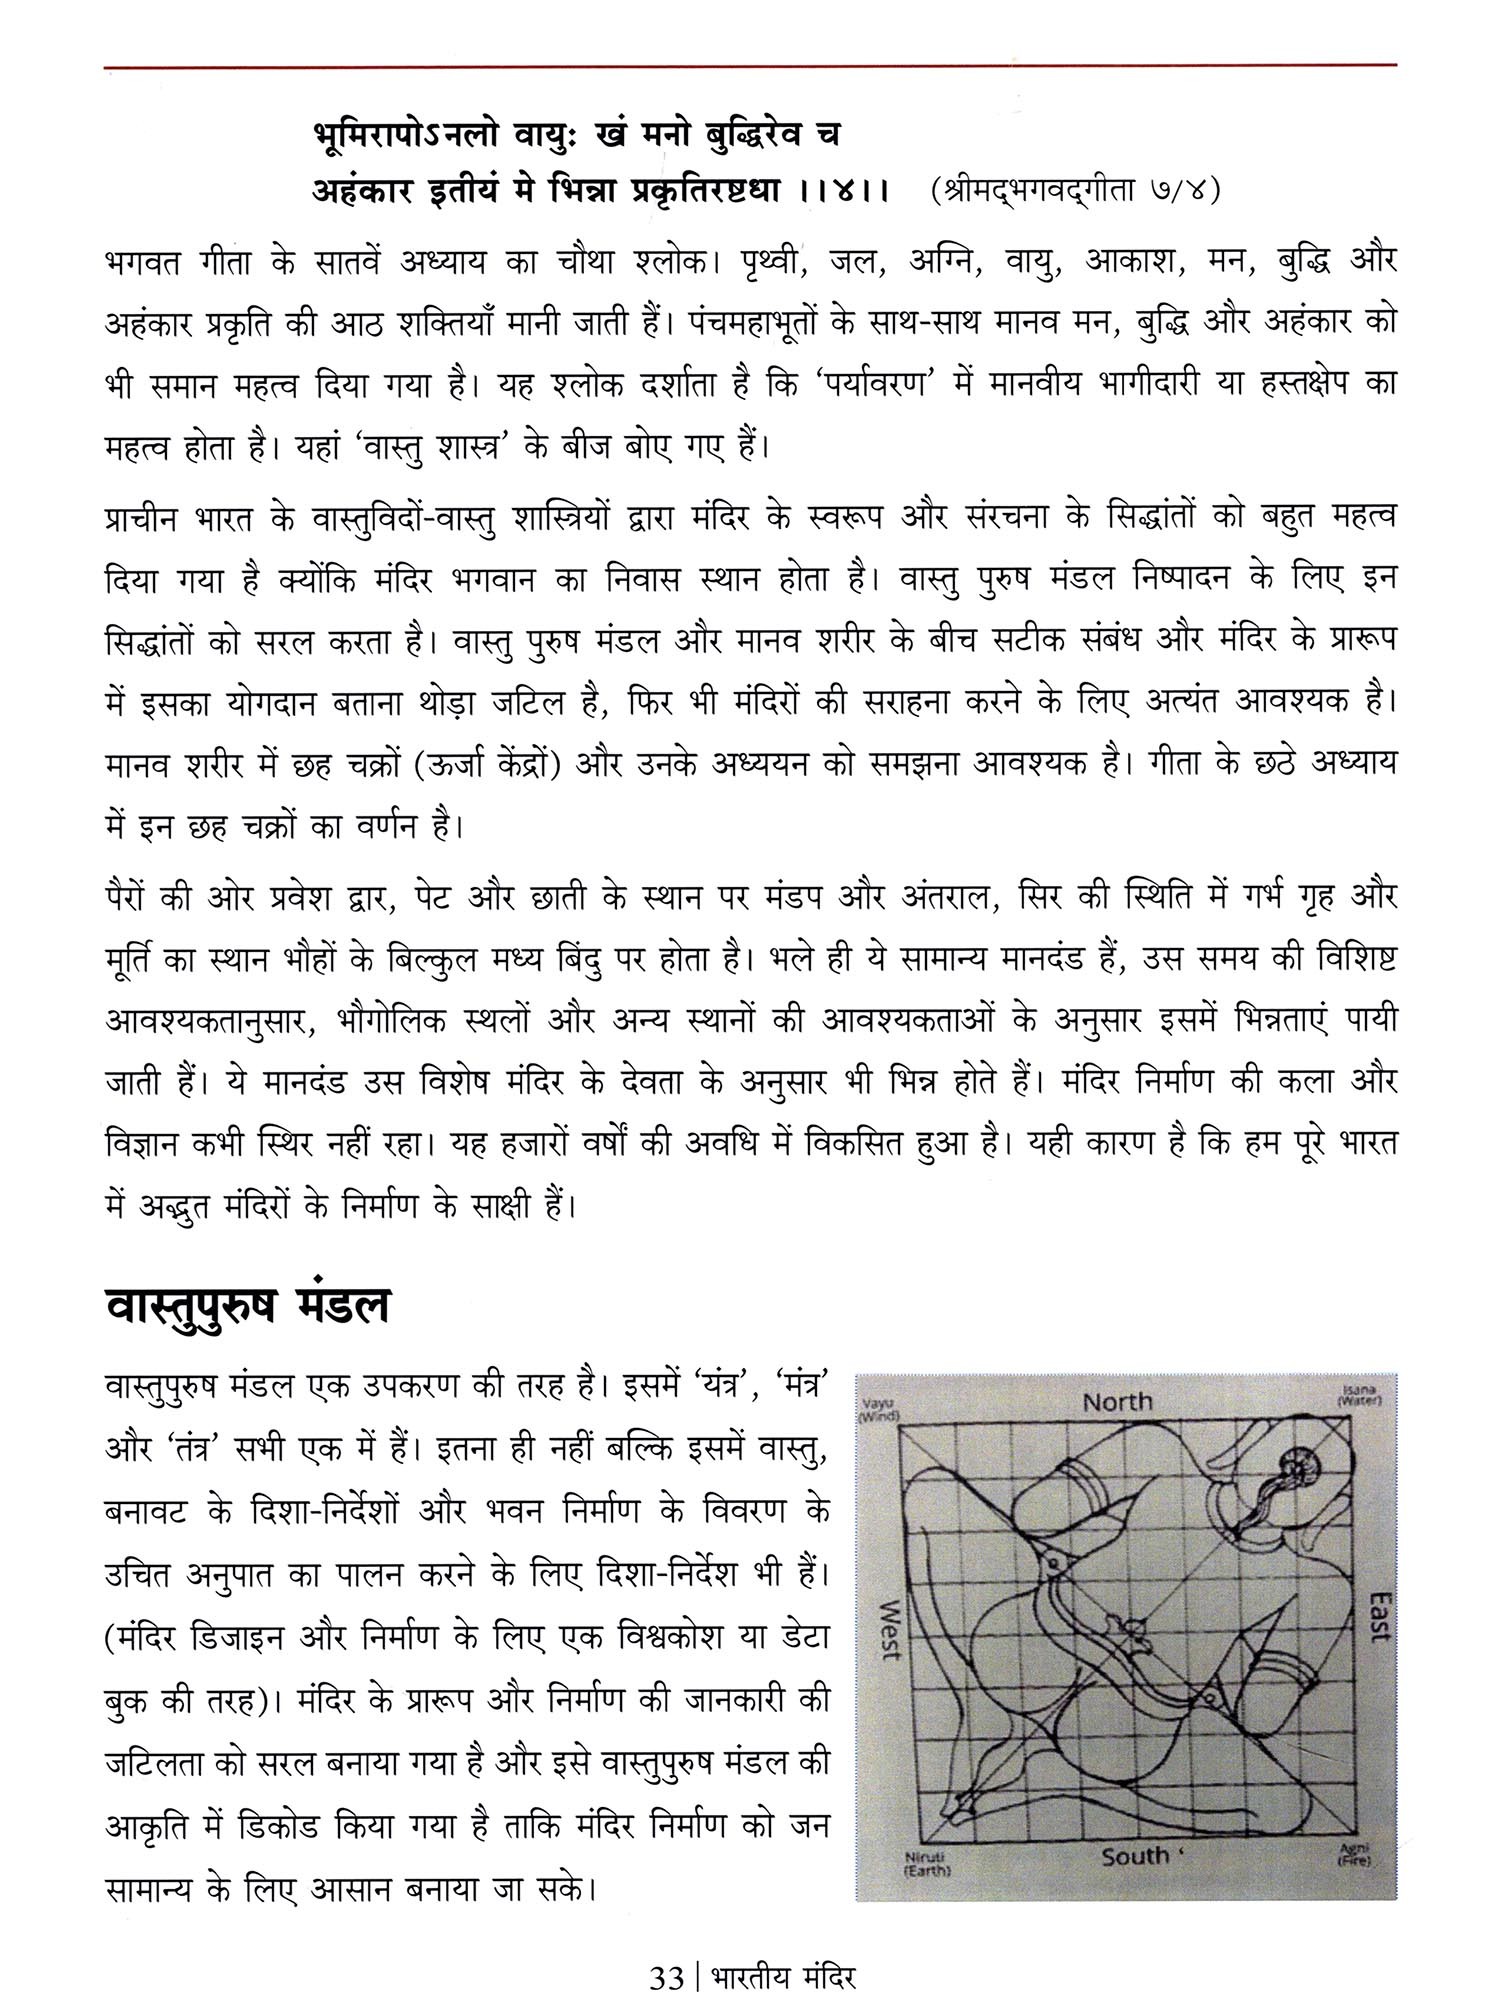 भूमिरापोऽनलो वायुः खं मनो बुद्धिरेव च
अहंकार इतीयं मे भिन्ना प्रकृतिरष्टधा ।।४।। (श्रीमद्भगवद्गीता ७/४)
भगवत गीता के सातवें अध्याय का चौथा श्लोक। पृथ्वी, जल, अग्नि, वायु, आकाश, मन, बुद्धि और
अहंकार प्रकृति की आठ शक्तियाँ मानी जाती हैं। पंचमहाभूतों के साथ-साथ मानव मन, बुद्धि और अहंकार को
भी समान महत्व दिया गया है। यह श्लोक दर्शाता है कि ‘पर्यावरण’ में मानवीय भागीदारी या हस्तक्षेप का
महत्व होता है। यहां ‘वास्तु शास्त्र’ के बीज बोए गए हैं।
प्राचीन भारत के वास्तुविदों-वास्तु शास्त्रियों द्वारा मंदिर के स्वरूप और संरचना के सिद्धांतों को बहुत महत्व
दिया गया है क्योंकि मंदिर भगवान का निवास स्थान होता है। वास्तु पुरुष मंडल निष्पादन के लिए इन
सिद्धांतों को सरल करता है। वास्तु पुरुष मंडल और मानव शरीर के बीच सटीक संबंध और मंदिर के प्रारूप
में इसका योगदान बताना थोड़ा जटिल है, फिर भी मंदिरों की सराहना करने के लिए अत्यंत आवश्यक है।
मानव शरीर में छह चक्रों (ऊर्जा केंद्रों) और उनके अध्ययन को समझना आवश्यक है। गीता के छठे अध्याय
में इन छह चक्रों का वर्णन है।
पैरों की ओर प्रवेश द्वार, पेट और छाती के स्थान पर मंडप और अंतराल, सिर की स्थिति में गर्भ गृह और
मूर्ति का स्थान भौहों के बिल्कुल मध्य बिंदु पर होता है। भले ही ये सामान्य मानदंड हैं, उस समय की विशिष्ट
आवश्यकतानुसार, भौगोलिक स्थलों और अन्य स्थानों की आवश्यकताओं के अनुसार इसमें भिन्नताएं पायी
जाती हैं। ये मानदंड उस विशेष मंदिर के देवता के अनुसार भी भिन्न होते हैं। मंदिर निर्माण की कला और
विज्ञान कभी स्थिर नहीं रहा। यह हजारों वर्षों की अवधि में विकसित हुआ है। यही कारण है कि हम पूरे भारत
में अद्भुत मंदिरों के निर्माण के साक्षी हैं।
वास्तुपुरुष मंडल
वास्तुपुरुष मंडल एक उपकरण की तरह है। इसमें ‘यंत्र’, ‘मंत्र’
और ‘तंत्र’ सभी एक में हैं। इतना ही नहीं बल्कि इसमें वास्तु,
बनावट के दिशा-निर्देशों और भवन निर्माण के विवरण के
उचित अनुपात का पालन करने के लिए दिशा-निर्देश भी हैं।
(मंदिर डिजाइन और निर्माण के लिए एक विश्वकोश या डेटा
बुक की तरह)। मंदिर के प्रारूप और निर्माण की जानकारी की
जटिलता को सरल बनाया गया है और इसे वास्तुपुरुष मंडल की
आकृति में डिकोड किया गया है ताकि मंदिर निर्माण को जन
सामान्य के लिए आसान बनाया जा सके।
Vayu
(Wind)
North
Isana
(Water)
West
East
Niruti
(Earth)
South
Agni
(Fire)
33 | भारतीय मंदिर